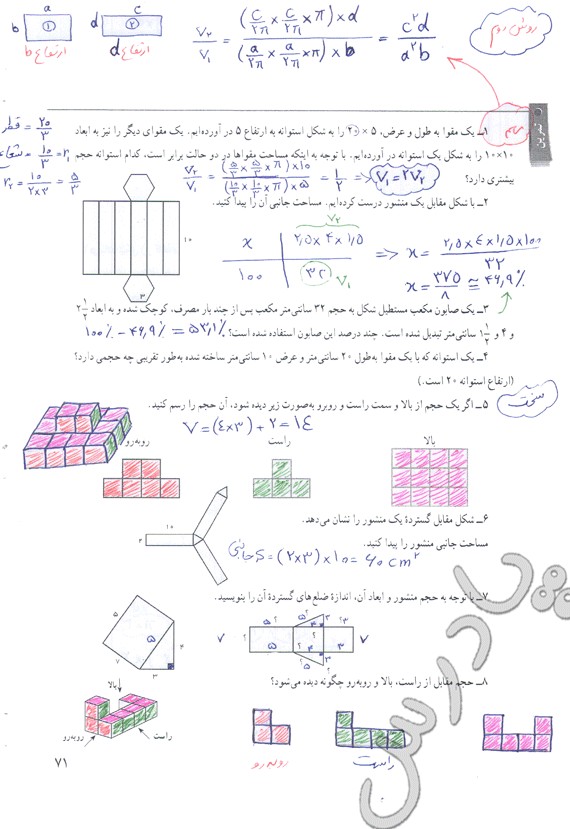 a
b ①
ارتفاع b
c
d ②
ارتفاع d
V₂/V₁ = ((c/2π × c/2π × π) × d) / ((a/2π × a/2π × π) × b) = c²d / a²b
روش دوم
مهم
تمرین
۱ــ یک مقوا به طول و عرض، ۵ × ۲۰ را به شکل استوانه به ارتفاع ۵ در آورده‌ایم. یک مقوای دیگر را نیز به ابعاد
۱۰×۱۰ را به شکل یک استوانه در آورده‌ایم. با توجه به اینکه مساحت مقواها در دو حالت برابر است، کدام استوانه حجم
بیشتری دارد؟
۲۰/۳ = قطر
r₁ = ۱۰/۳ = شعاع
r₂ = ۱۰/(۲×۳) = ۵/۳
V₂/V₁ = ((۵/۳ × ۵/۳ × π) × ۱۰) / ((۱۰/۳ × ۱۰/۳ × π) × ۵) = ۱/۲ => V₁ = ۲V₂
۲ــ با شکل مقابل یک منشور درست کرده‌ایم. مساحت جانبی آن را پیدا کنید.
۱۰
۳
V₂
x | ۲٫۵ × ۴ × ۱٫۵
۱۰۰ | ۳۲ V₁
=> x = (۲٫۵ × ۴ × ۱٫۵ × ۱۰۰) / ۳۲
x = ۳۷۵/۸ ≃ ۴۶٫۹٪
۳ــ یک صابون مکعب مستطیل شکل به حجم ۳۲ سانتی‌متر مکعب پس از چند بار مصرف، کوچک شده و به ابعاد ۲ ۱/۲
و ۴ و ۱ ۱/۲ سانتی‌متر تبدیل شده است. چند درصد این صابون استفاده شده است؟ ۱۰۰٪ − ۴۶٫۹٪ = ۵۳٫۱٪
۴ــ یک استوانه که با یک مقوا به‌طول ۲۰ سانتی‌متر و عرض ۱۰ سانتی‌متر ساخته شده به‌طور تقریبی چه حجمی دارد؟
(ارتفاع استوانه ۲۰ است.)
سخت
۵ــ اگر یک حجم از بالا و سمت راست و روبرو به‌صورت زیر دیده شود، آن حجم را رسم کنید.
V = (۴×۳) + ۲ = ۱۴
بالا
راست
روبه‌رو
۶ــ شکل مقابل گستردهٔ یک منشور را نشان می‌دهد.
مساحت جانبی منشور را پیدا کنید.
جانبی S = (۲×۳) × ۱۰ = ۶۰ cm²
۱۰
۲
۷ــ با توجه به حجم منشور و ابعاد آن، اندازهٔ ضلع‌های گستردهٔ آن را بنویسید.
۵
۵
۷
۴
۳
۷
۷
۸ــ حجم مقابل از راست، بالا و روبه‌رو چگونه دیده می‌شود؟
بالا
روبه‌رو
راست
روبه رو
راست
پادرس
۷۱